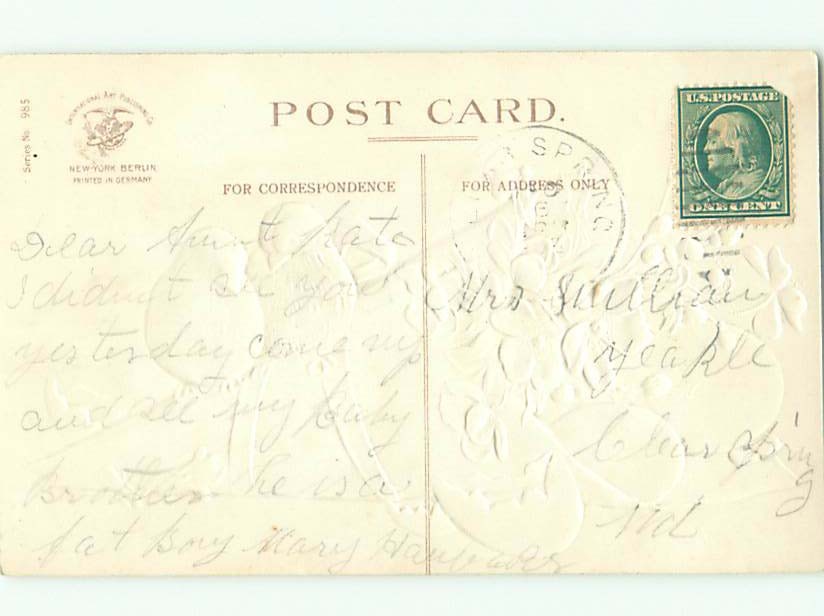 Series No. 985
INTERNATIONAL ART PUBLISHING CO.
NEW-YORK BERLIN
PRINTED IN GERMANY
POST CARD.
FOR CORRESPONDENCE
FOR ADDRESS ONLY
SPRING
U.S. POSTAGE
ONE CENT
Dear Aunt Kate
I didnt see you
yesterday come up
and see my Baby
Brother he is a
fat Boy Mary
Mrs
Yeakle
Clear Spring
Md